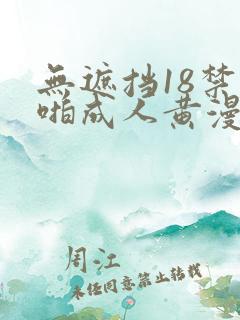 無遮挡18禁
啪成人黄漫
周江
未经同意禁止转载